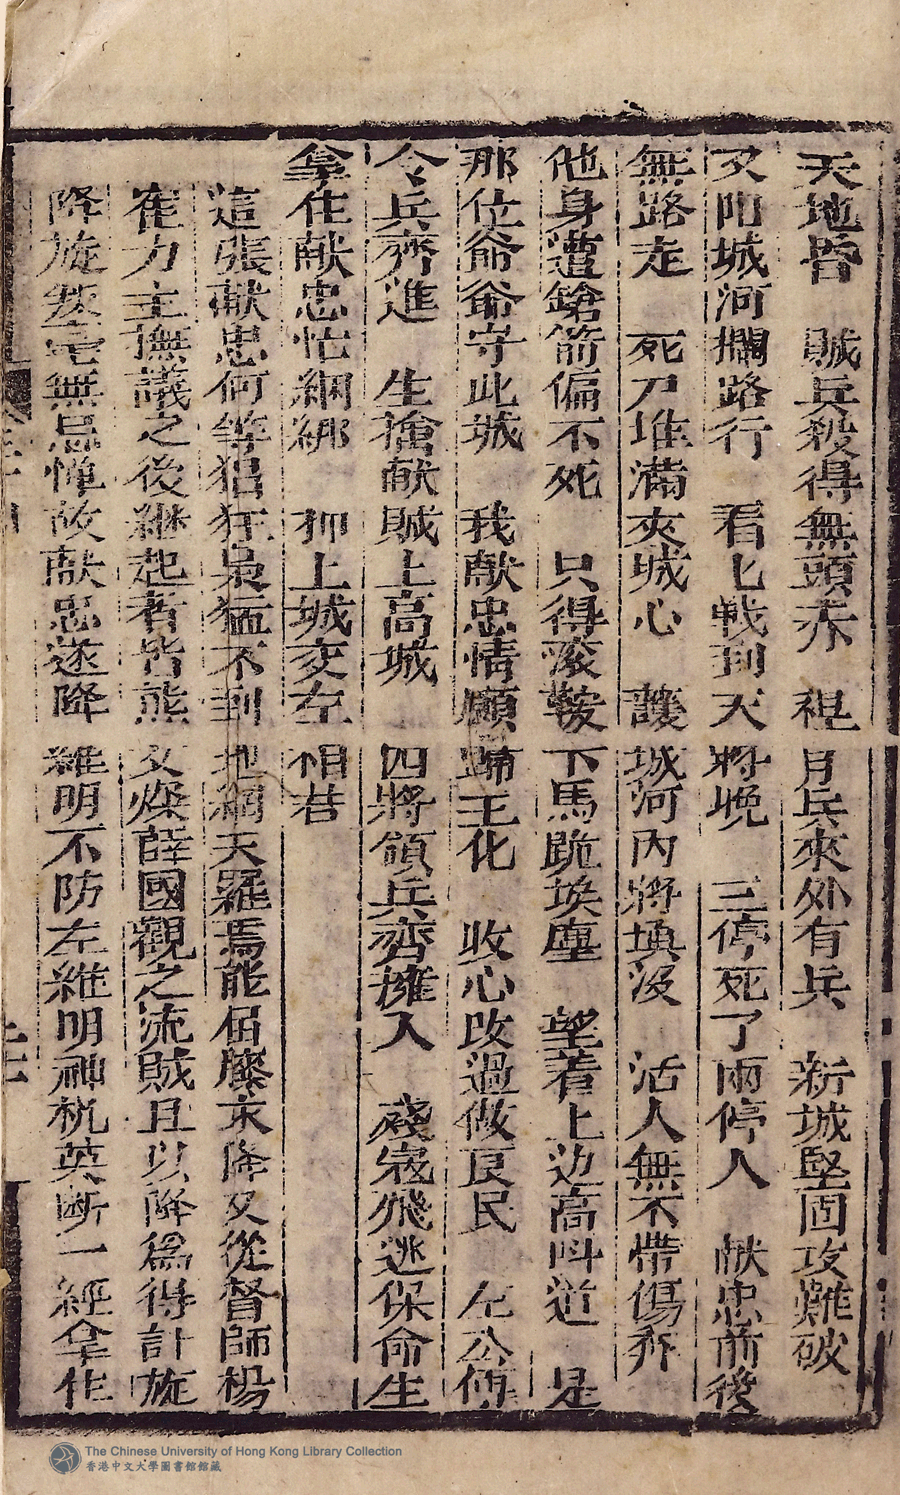 天地昏　賊兵殺得無頭赤　裩　月兵來外有兵　新城堅固攻難破
又阻城河攔路行　看匕戰到天將晚　三停死了兩停人　献忠前後
無路走　死尸堆滿夾城心　護城河內將填沒　活人無不帶傷痕
他身遭鎗箭偏不死　只得滚鞍下馬跪埃塵　望着上边高呌道　是
那位爺爺守此城　我献忠情願歸王化　收心改過做良民　左公傳
令兵齊進　生擒献賊上高城　四將領兵齊擁入　殘寇飛逃保命生
拿住献忠忙綑綁　抑上城交左相君
這張献忠何等猖狂梟猛不到地網天羅焉能屈膝求降又從督師楊
崔力主撫議之後継起者皆熊文燦薛國觀之流賊且以降爲得計旋
降旋叛毫無忌惮故献忠遂降維明不防左維明神机英断一經拿住